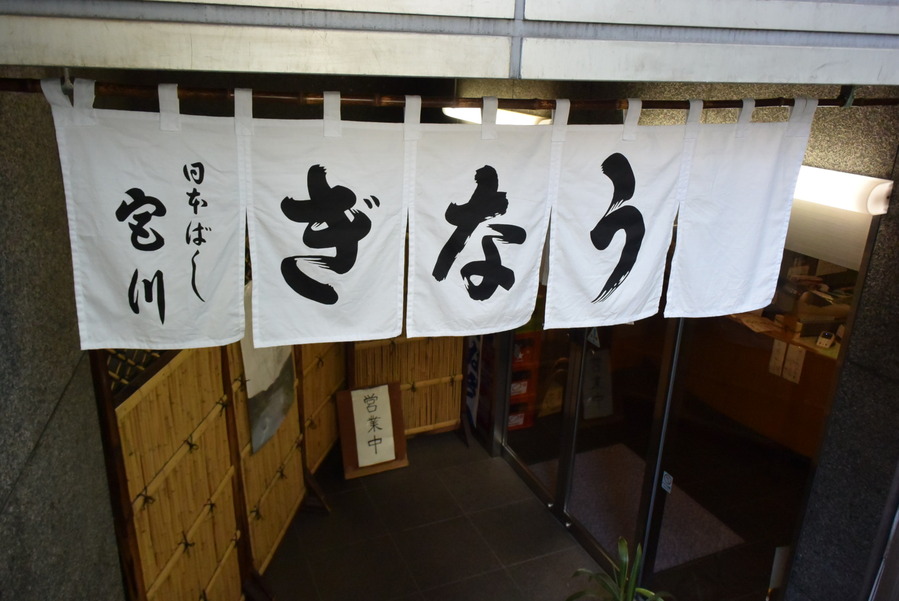 うなぎ
日本ばし
宮川
営業中